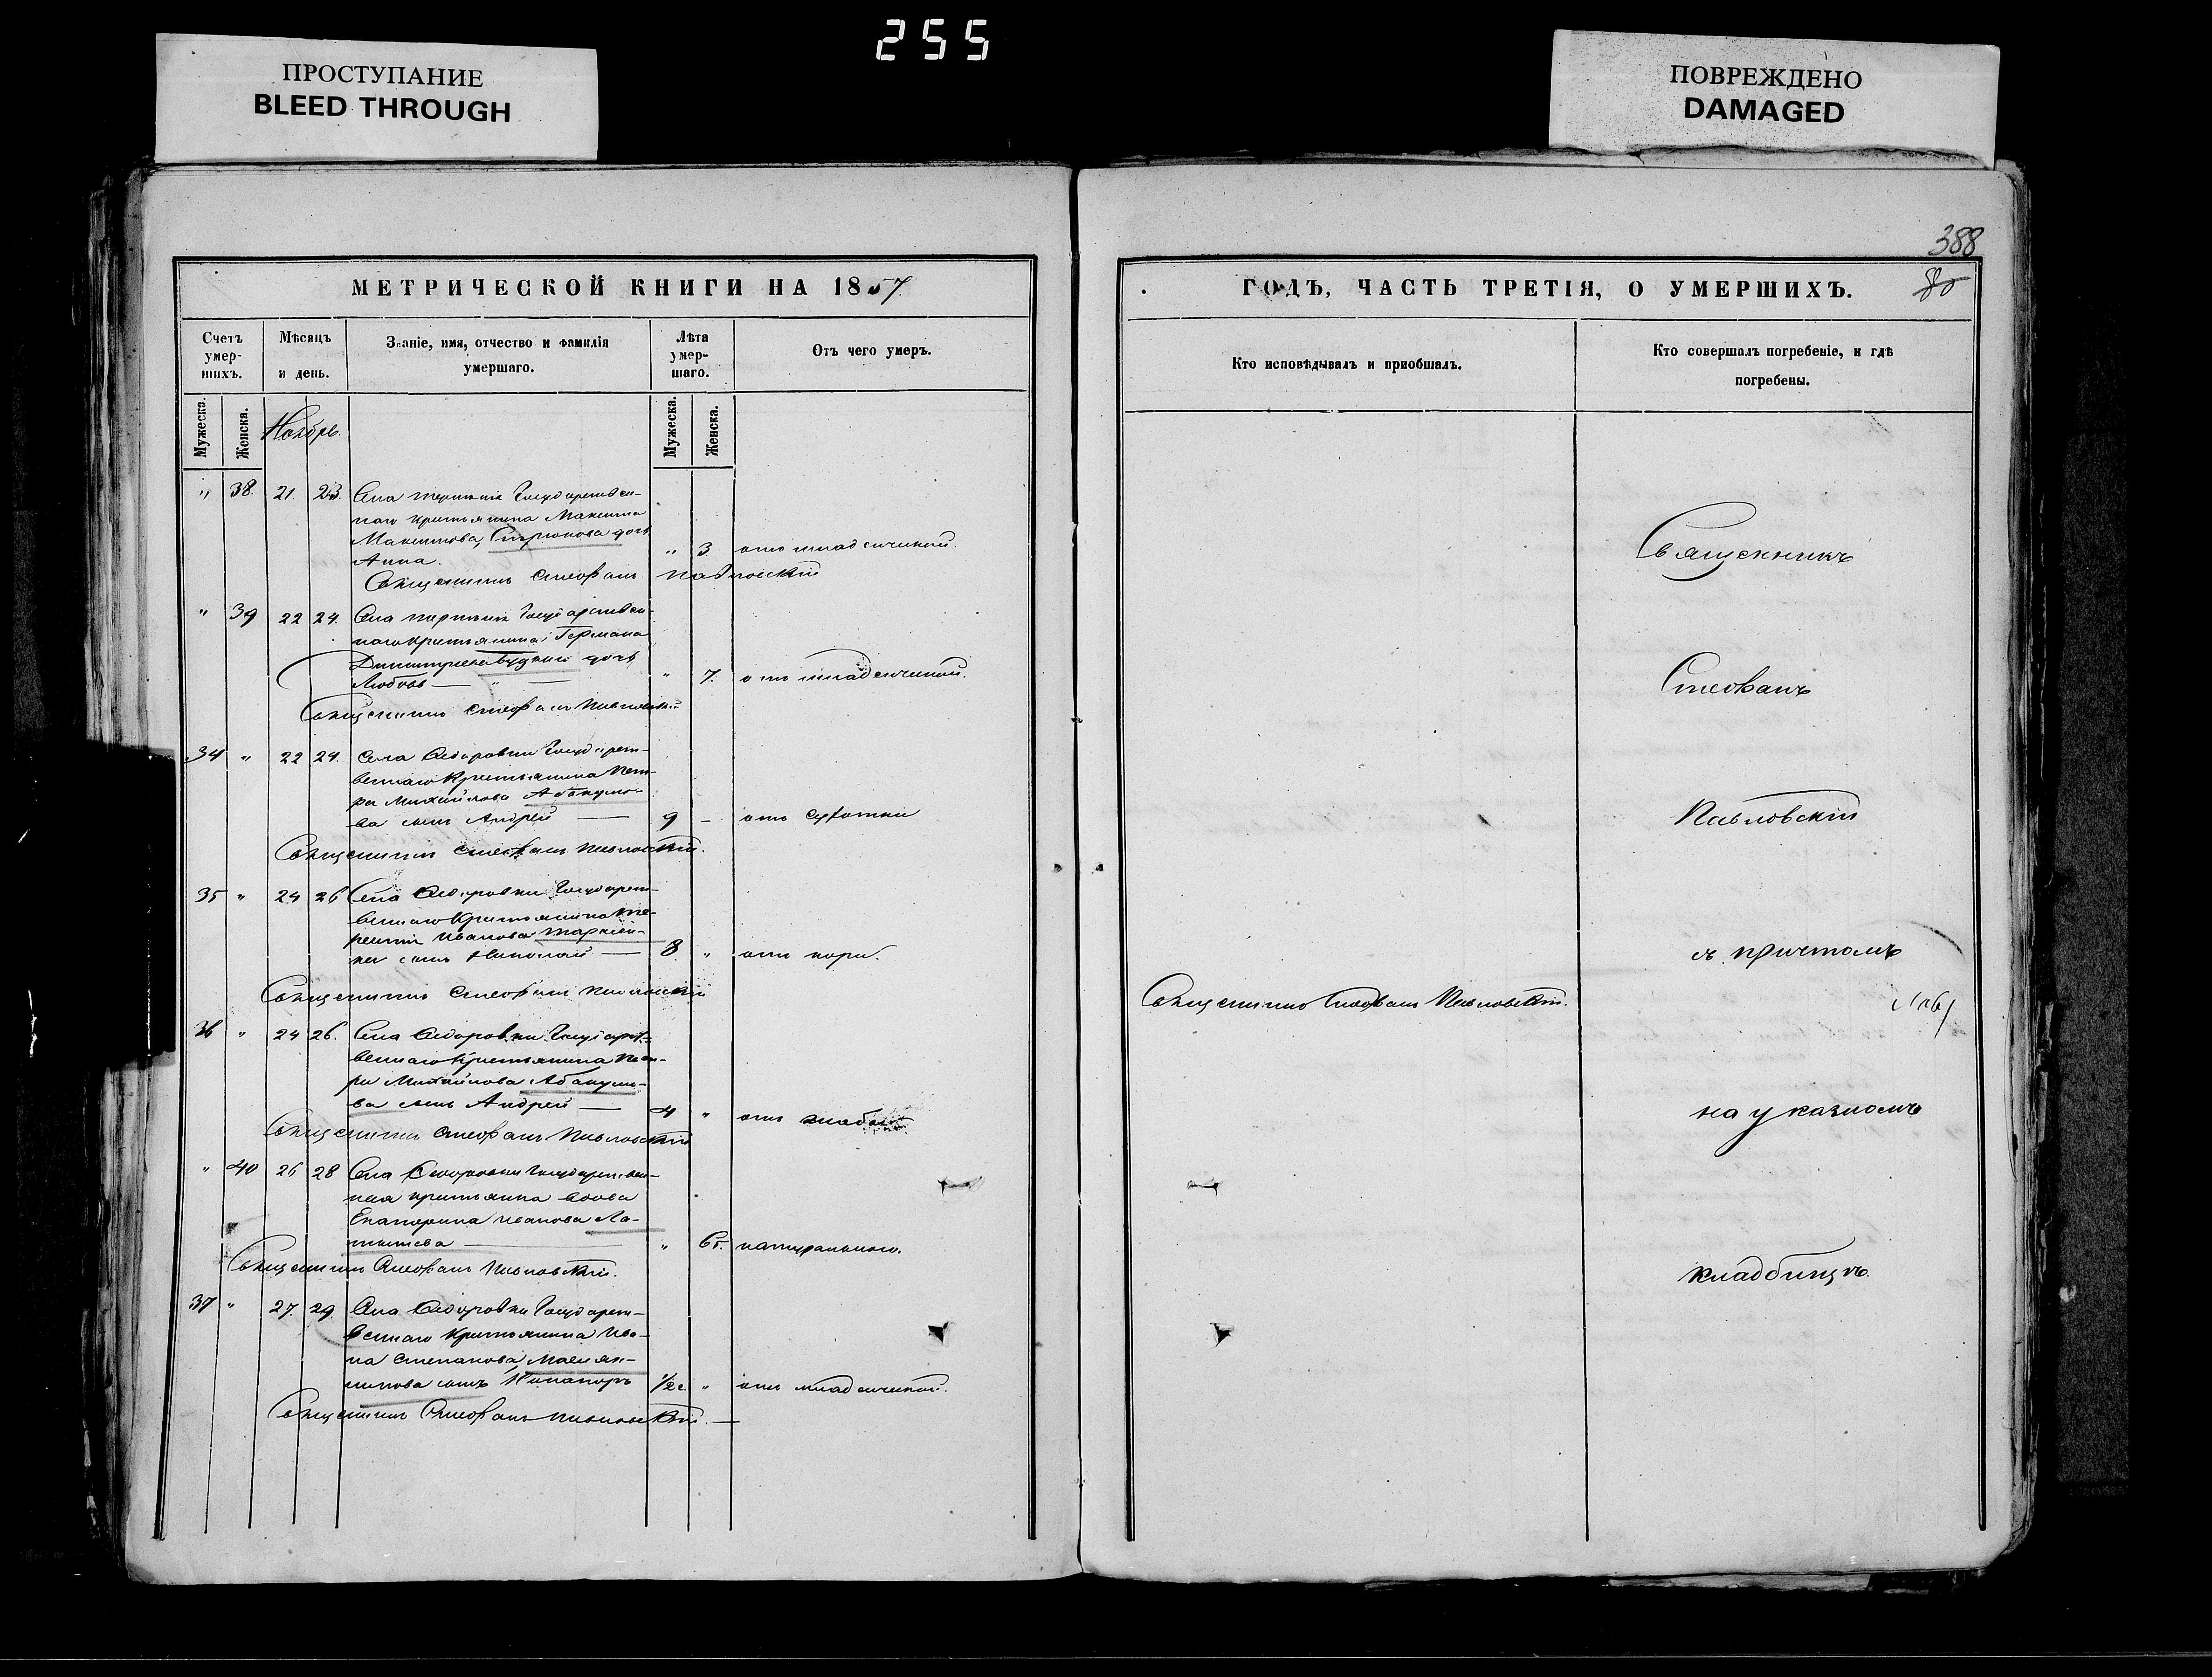 255
ПРОСТУПАНИЕ
BLEED THROUGH
ПОВРЕЖДЕНО
DAMAGED
МЕТРИЧЕСКОЙ КНИГИ НА 1857
Счетъ умер-шихъ.
Мѣсяцъ и день.
Званіе, имя, отчество и фамилія умершаго.
Лѣта умер-шаго.
Отъ чего умеръ.
Мужеска.
Женска.
Ноябрь.
Мужеска.
Женска.
" 38. 21. 23. Государствен-
наго крестьянина Максима
Максимова дочь
Анна. " 3 отъ младенческой.
Священникъ Стефанъ Павловскій
" 39 22 24. Государствен-
наго крестьянина Германа
Димитріева дочь
Любовь " 7. отъ младенческой.
Священникъ Стефанъ Павловскій
34 " 22 24. Села Сидоровки Государст-
веннаго крестьянина Пет-
ра Михайлова Абакумо-
ва сынъ Андрей 9 - отъ сухотки
Священникъ Стефанъ Павловскій.
35 " 24 26 Села Сидоровки Государст-
веннаго крестьянина Те-
рентія Иванова
сынъ Николай 8 " отъ кори.
Священникъ Стефанъ Павловскій
36 " 24 26. Села Сидоровки Государст-
веннаго крестьянина Пет-
ра Михайлова Абакумо-
ва сынъ Андрей 4 " отъ
Священникъ Стефанъ Павловскій
" 40 26 28 Села Сидоровки Государствен-
ная крестьянка вдова
Екатерина Иванова
" 65. натурально.
Священникъ Стефанъ Павловскій.
37 " 27. 29. Села Сидоровки Государст-
веннаго крестьянина Ива-
на Степанова
сынъ Никаноръ 1/2 г. " отъ младенческой.
Священникъ Стефанъ Павловскій.
388
80
ГОДЪ, ЧАСТЬ ТРЕТІЯ, О УМЕРШИХЪ.
Кто исповѣдывалъ и пріобщалъ.
Кто совершалъ погребеніе, и гдѣ погребены.
Священникъ
Стефанъ
Павловскій
съ причтомъ
Священникъ Стефанъ Павловскій.
на указномъ
кладбищѣ.